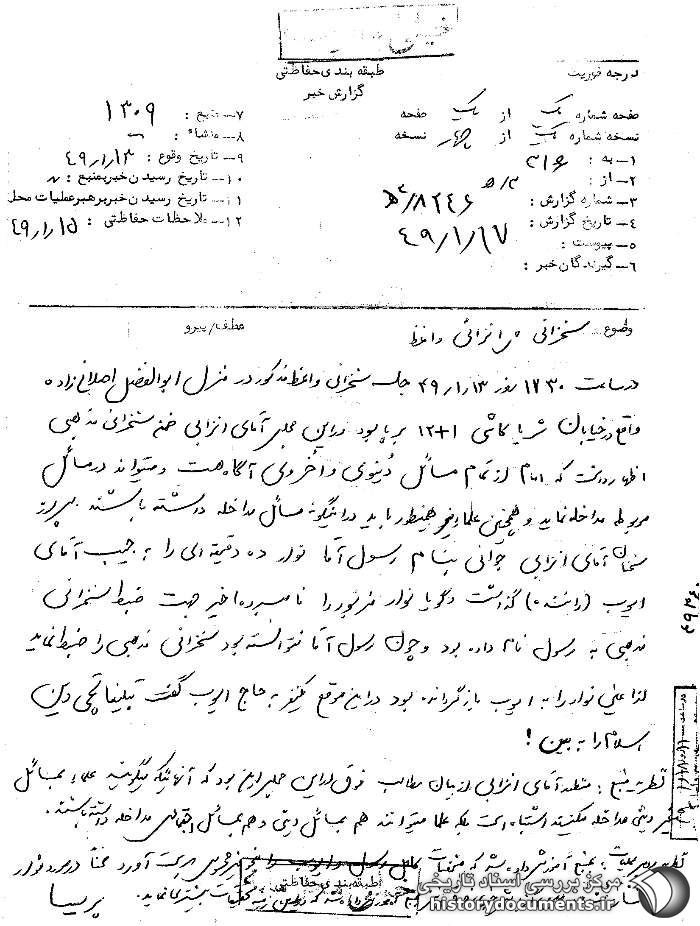 خیلی محرمانه
درجه فوریت
طبقه بندی حفاظتی
گزارش خبر
صفحه شماره یک از یک صفحه
نسخه شماره یک از چهار نسخه
۱ـ به : ۳۱۶
۲ـ از : ۳/ه
۳ـ شماره گزارش :
۴ـ تاریخ گزارش : ۴۹/۱/۱۷
۵ـ پیوست :
۶ـ گیرندگان خبر :
۷ـ منبع : ۱۳۰۹
۸ـ منشاء :
۹ـ تاریخ وقوع : ۴۹/۱/۱۳
۱۰ـ تاریخ رسیدن خبر بمنبع :
۱۱ـ تاریخ رسیدن خبر برهبر عملیات محل
۱۲ـ ملاحظات حفاظتی : ۴۹/۱/۱۵
موضوع سخنرانی انزابی واعظ
عطف/پیرو
در ساعت ۱۷۳۰ روز ۴۹/۱/۱۳ جلسه سخنرانی واعظ مذکور در منزل ابوالفضل اصلانی زاده
واقع در خیابان ثریا کاشی ۱+۱۲ بر پا بود در این مجلس آقای انزابی ضمن سخنرانی مذهبی
اظهار داشت که امام از تمام مسائل دنیوی و اخروی آگاه هست و میتواند در مسائل
مربوطه مداخله نماید و همچنین علماء نیز همینطور باید در اینگونه مسائل مداخله داشته باشند پس از
سخنان آقای انزابی جوانی بنام رسول آقا نوار ده دقیقه ای را به جیب آقای
ایوب (راننده) گذاشت و گویا نوار مزبور را نامبرده اخیر جهت ضبط سخنرانی
مذهبی به رسول نام داده بود و چون رسول آقا نتوانسته بود سخنرانی مذهبی را ضبط نماید
لذا عین نوار را به ایوب بازگردانده بود در این موقع یکنفر به حاج ایوب گفت تبلیغاتچی دین
اسلام را به بین !
نظریه منبع : منظور آقای انزابی از بیان مطالب فوق در این مجلس این بود که آنهائیکه میگویند علماء بمسائل
غیر دینی مداخله نکنند اشتباه است بلکه علما میتوانند هم بمسائل دینی و هم بمسائل اجتماعی مداخله داشته باشند.
بمنبع آموزش داده شد که رسول و ایوب را بدست آورد ضمناً در مورد نوار
نماید. پریسا
طبقه بندی حفاظتی
مرکز بررسی اسناد تاریخی
historydocuments.ir